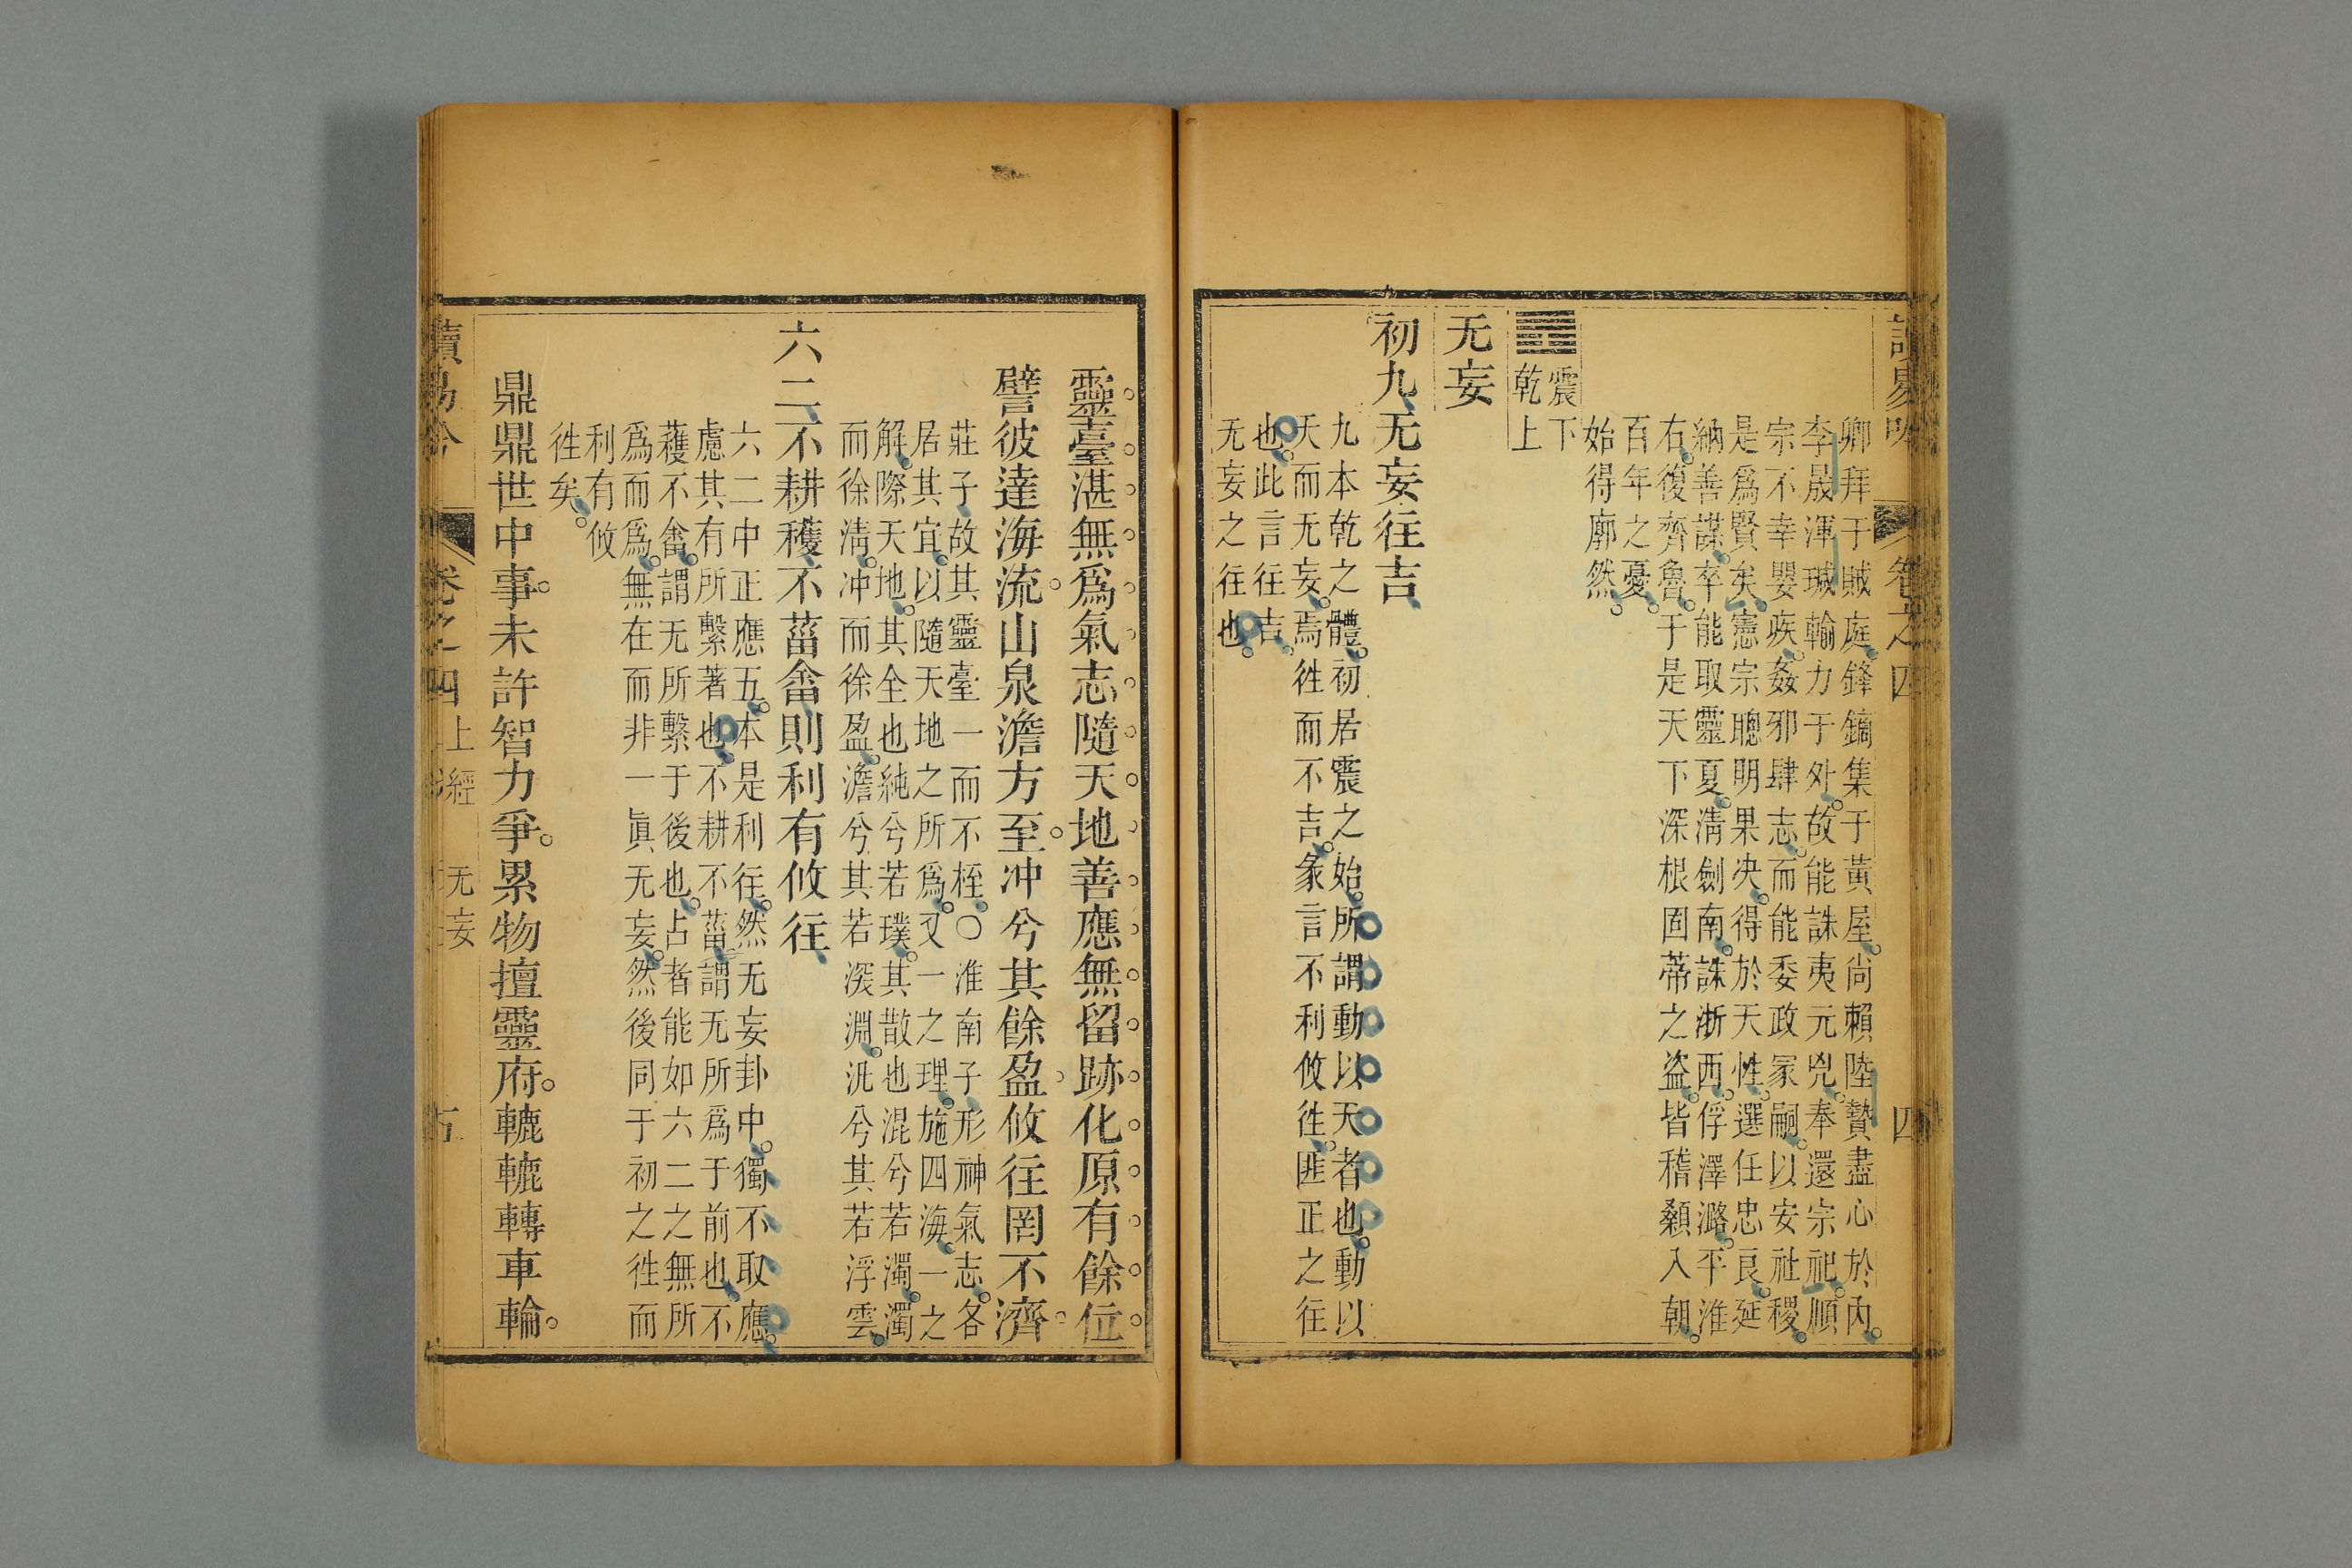 卷之四
四
卿拜于賊庭鋒鏑集于黃屋尚賴陸贄盡心於內
李晟渾瑊輸力于外故能誅夷元兇奉還宗祀順
宗不幸嬰疾姦邪肆志而能委政冢嗣以安社稷
是爲賢矣憲宗聰明果決得於天性選任忠良延
納善謀卒能取靈夏淸劍南誅浙西俘澤潞平淮
右復齊魯于是天下深根固蒂之盜皆稽顙入朝
百年之憂
始得廓然
震下
乾上
无妄
初九无妄往吉
九本乾之體初居震之始所謂動以天者也動以
天而无妄焉徃而不吉彖言不利攸徃匪正之往
也此言往吉
无妄之往也
靈臺湛無爲氣志隨天地善應無留跡化原有餘位
譬彼達海流山泉澹方至冲兮其餘盈攸往罔不濟
莊子故其靈臺一而不桎○淮南子形神氣志各
居其宜以隨天地之所爲又一之理施四海一之
解際天地其全也純兮若璞其散也混兮若濁濁
而徐淸冲而徐盈澹兮其若深淵汎兮其若浮雲
六二不耕穫不菑畬則利有攸往
六二中正應五本是利往然无妄卦中獨不取應
慮其有所繫著也不耕不菑謂无所爲于前也不
穫不畬謂无所繫于後也占者能如六二之無所
爲而爲無在而非一眞无妄然後同于初之徃而
利有攸
徃矣
鼎鼎世中事未許智力爭累物擅靈府轆轆轉車輪
讀易吟
卷之四
上經
无妄